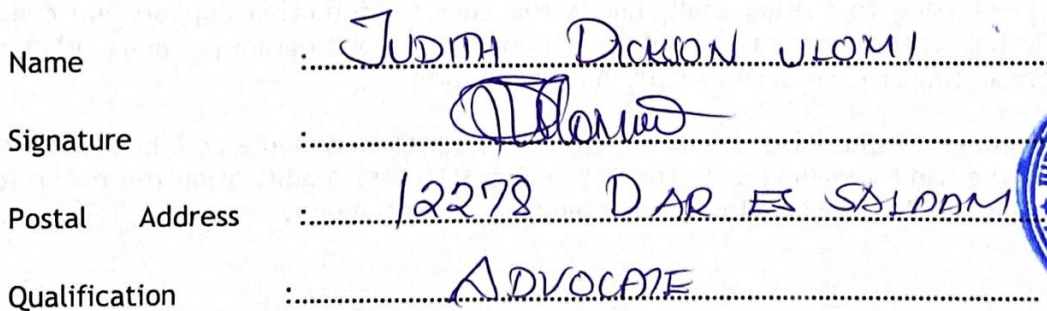 Name : JUDITH DICKSON ULOMI
Signature :
Postal Address : 12278 DAR ES SALAAM
Qualification : ADVOCATE